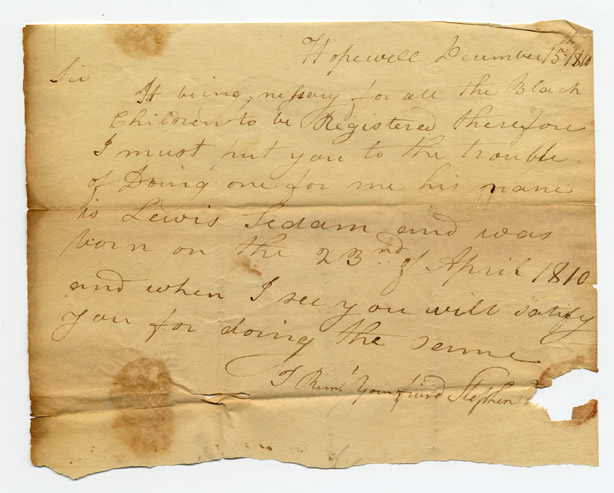 Hopewell December 15th 1810
Sir
It being nessary for all the Black
Children to be Registered therefore
I must put you to the trouble
of Doing one for me his name
is Lewis Sedam and was
born on the 23nd of April 1810
and when I see you will satisfy
you for doing the same
I Rem. Your friend Stephen